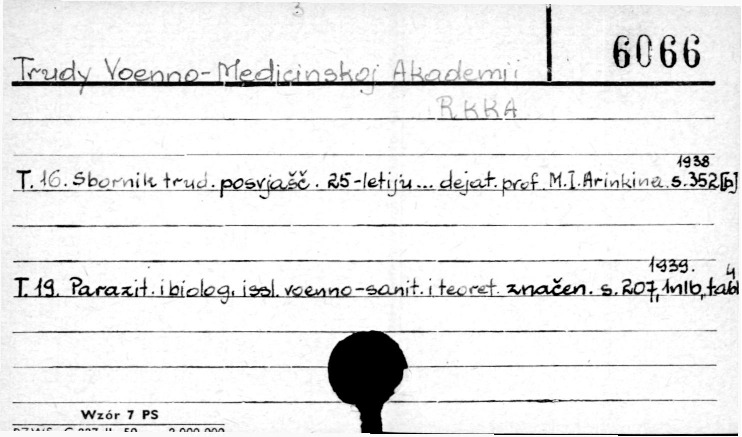 3
6066
Trudy Voenno-Medicinskoj Akademji
RKKA
1938
T. 16. Sbornik trud. posvjašč. 25-letiju... dejat. prof. M.I. Arinkina. s. 352 [b]
1939. 4
T. 19. Parazit. i biolog. issl. voenno-sanit. i teoret. značen. s. 207, 1nlb, tabl
Wzór 7 PS